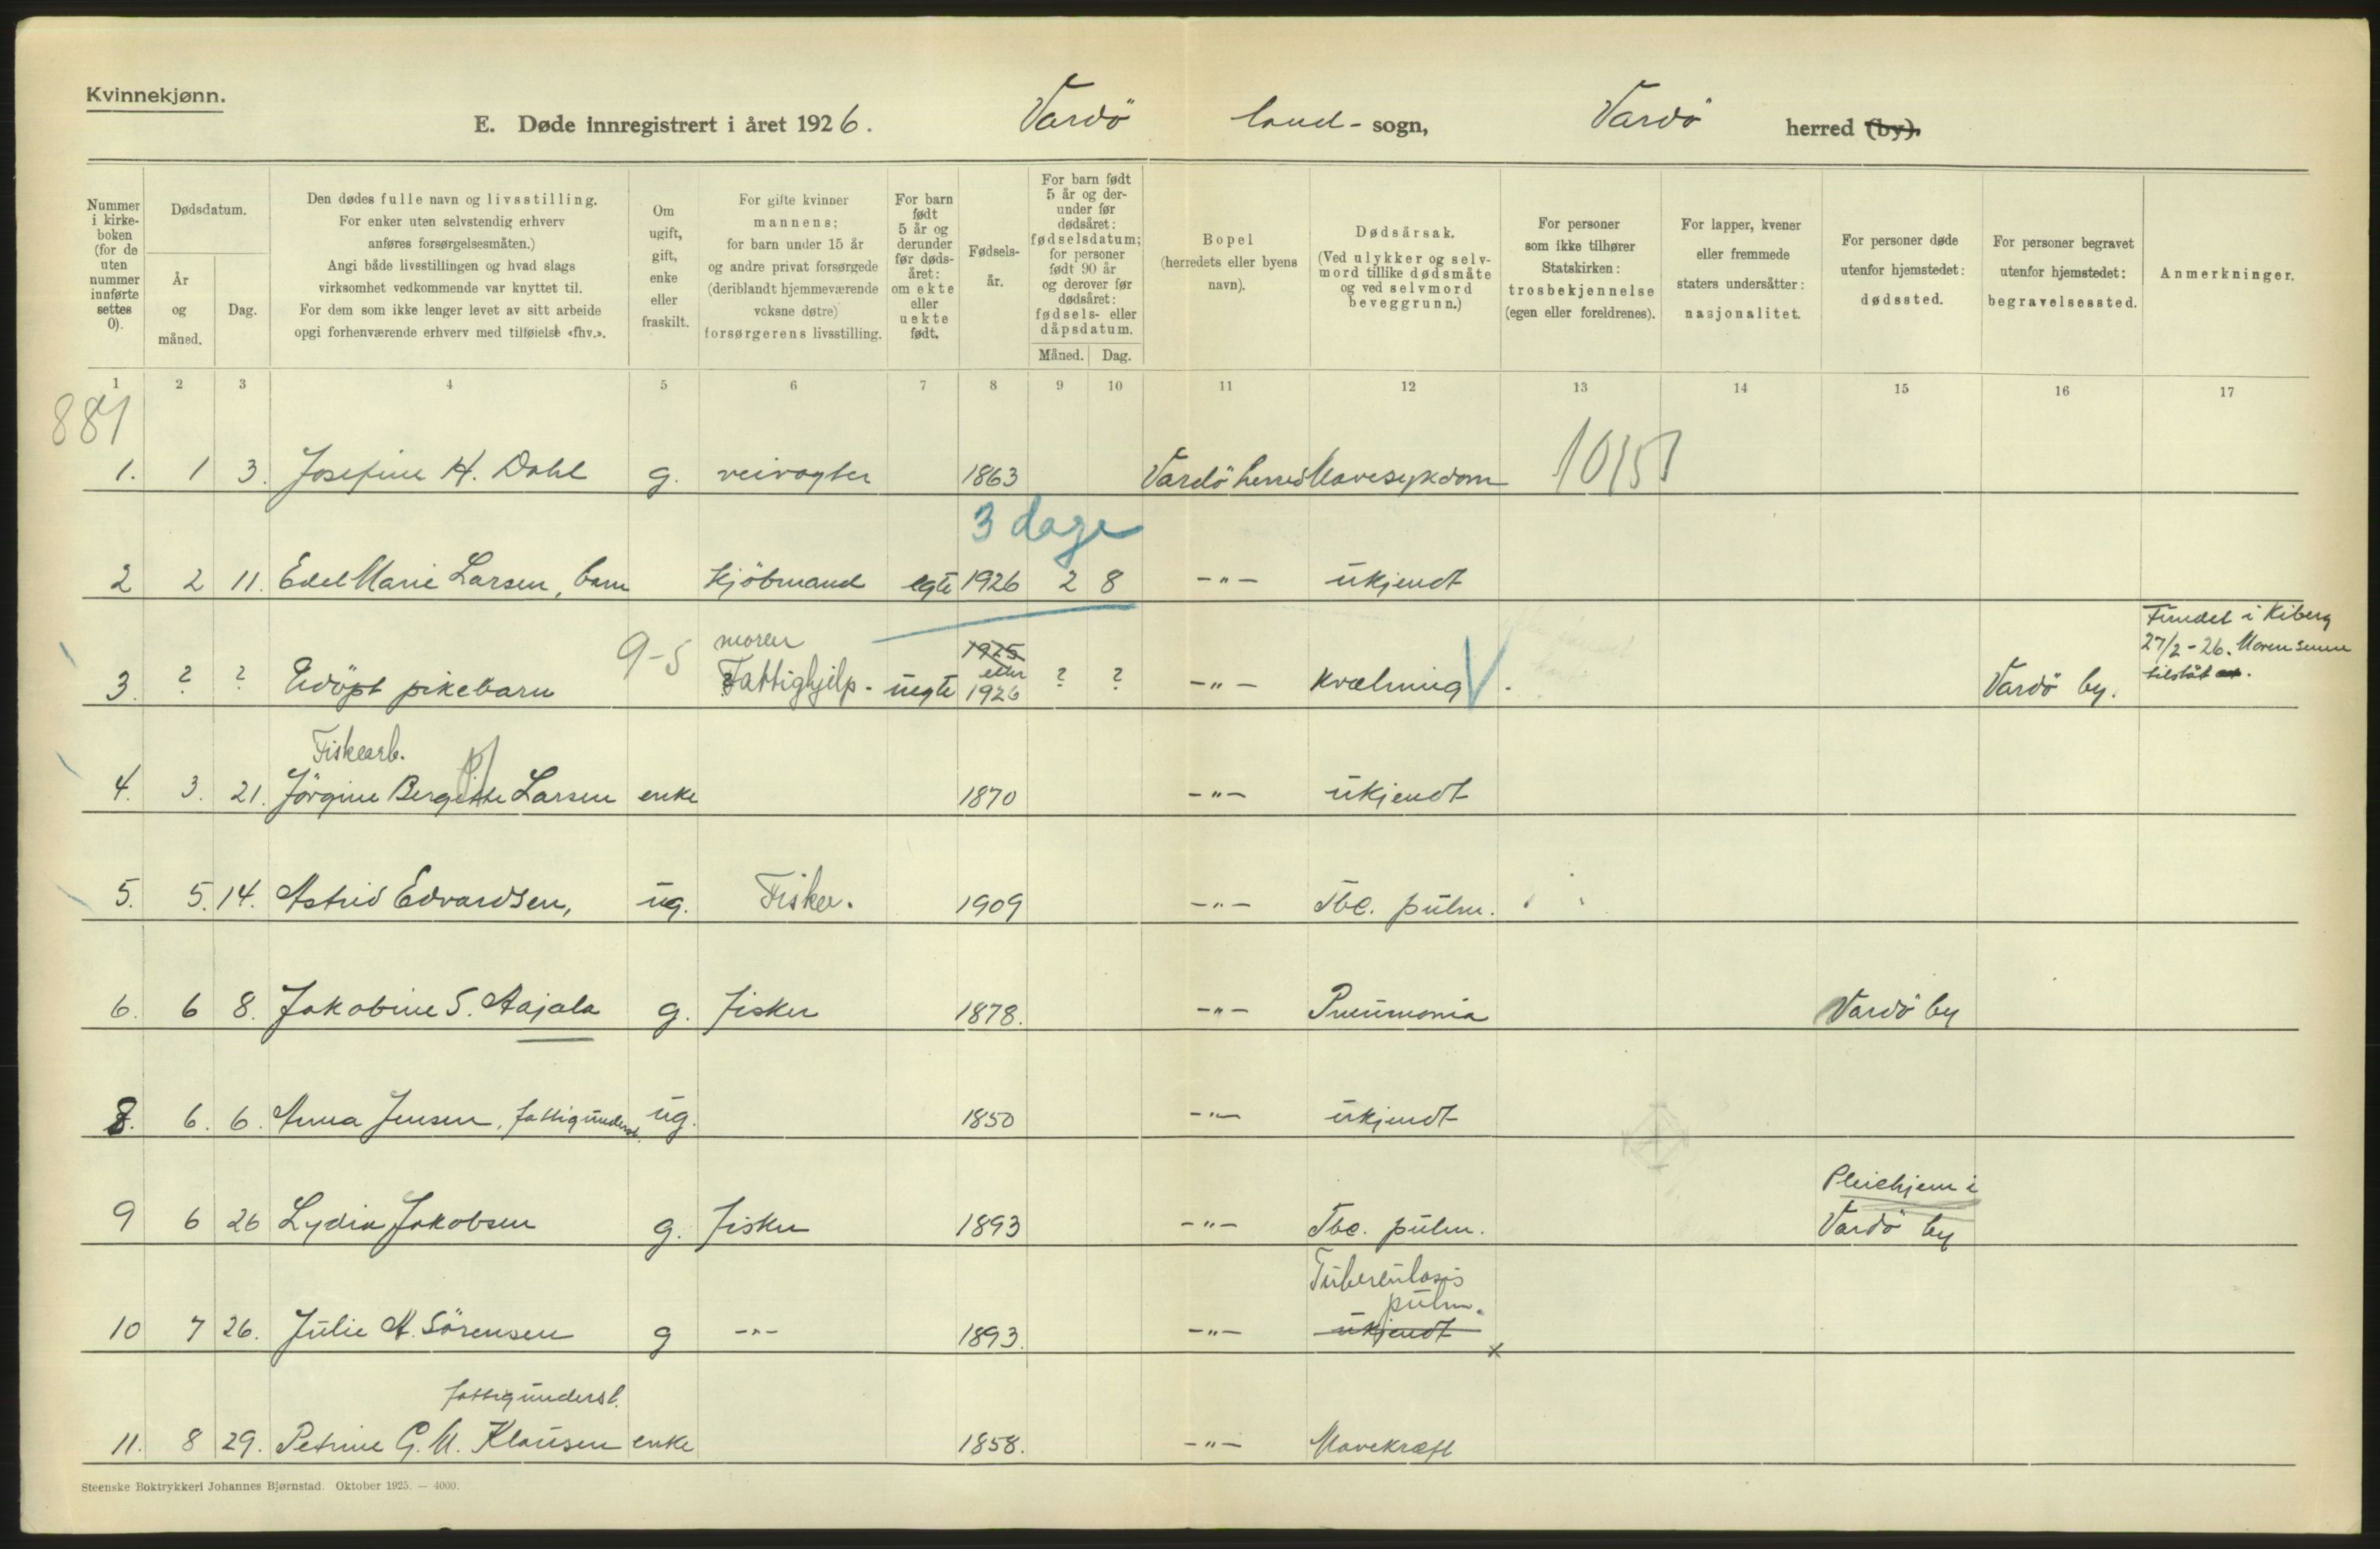 Kvinnekjønn.
E. Døde innregistrert i året 1926. Vardö land- sogn, Vardö herred (by).
Nummer i kirke- boken (for de uten nummer innførte settes 0).
Dødsdatum.
År og måned.
Dag.
Den dødes fulle navn og livsstilling.
For enker uten selvstendig erhverv
anføres forsørgelsesmåten.)
Angi både livsstillingen og hvad slags
virksomhet vedkommende var knyttet til.
For dem som ikke lenger levet av sitt arbeide
opgi forhenværende erhverv med tilføielse «fhv.».
Om ugift, gift, enke eller fraskilt.
For gifte kvinner
mannens;
for barn under 15 år
og andre privat forsørgede
(deriblandt hjemmeværende
voksne døtre)
forsørgerens livsstilling.
For barn født 5 år og derunder før døds- året: om ekte eller uekte født.
Fødsels- år.
For barn født 5 år og der- under før dødsåret: fødselsdatum; for personer født 90 år og derover før dødsåret: fødsels- eller dåpsdatum.
Måned. Dag.
Bopel
(herredets eller byens
navn).
Dødsårsak.
(Ved ulykker og selv-
mord tillike dødsmåte
og ved selvmord
beveggrunn.)
For personer
som ikke tilhører
Statskirken:
trosbekjennelse
(egen eller foreldrenes).
For lapper, kvener
eller fremmede
staters undersåtter:
nasjonalitet.
For personer døde
utenfor hjemstedet:
dødssted.
For personer begravet
utenfor hjemstedet:
begravelsessted.
Anmerkninger.
1 2 3 4 5 6 7 8 9 10 11 12 13 14 15 16 17
881
1. 1 3. Josefine H. Dahl g. veivogter 1863 Vardö herred Mavesykdom 10151
3 dage
2 2 11. Edel Marie Larsen, barn kjöbmand egte 1926 2 8 -"- ukjendt
Fundet i Kiberg
9-5 moren 1925 27/2-26. Moren senere
3. ? ? Udöpt pikebarn Fattighjelp. uegte eller 1926 ? ? -"- Kvælning V. Vardö by. tilståt
Fiskearb.
4. 3. 21. Jörgine Bergitte Larsen enke 1870 -"- ukjendt
5. 5. 14. Astrid Edvardsen, ug. Fisker. 1909 -"- Tbc. pulm.
6. 6 8. Jakobine S. Aajala g. fisker 1878. -"- Pneumonia Vardö by
8. 6. 6. Anna Jensen, fattigunderst. ug. 1850 -"- ukjendt
Pleiehjem i
9 6 26 Lydia Jakobsen g. fisker 1893 -"- Tbc. pulm. Vardö by
Tuberculosis
pulm.
10 7 26. Julie A. Sörensen g -"- 1893. -"- ukjendt x
fattigunderst.
11. 8 29. Petrine G. M. Klausen enke 1858. -"- Mavekræft
Steenske Boktrykkeri Johannes Bjørnstad. Oktober 1925. — 4000.